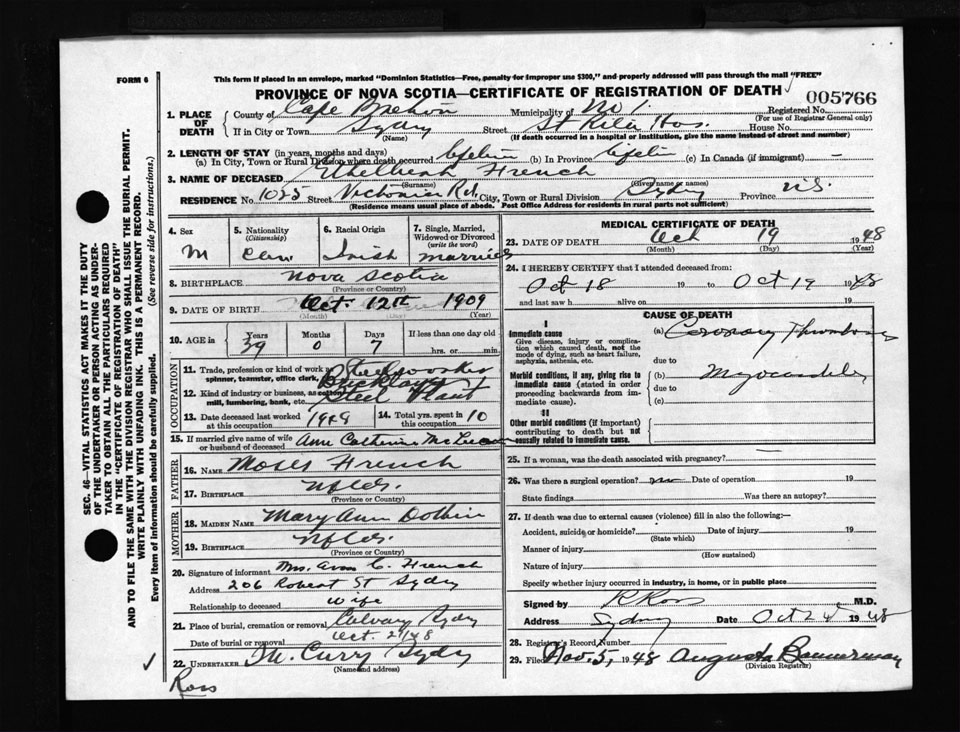 This form if placed in an envelope, marked "Dominion Statistics—Free, penalty for improper use $300," and properly addressed will pass through the mail "FREE"
FORM 6
PROVINCE OF NOVA SCOTIA—CERTIFICATE OF REGISTRATION OF DEATH
005766
1. PLACE OF DEATH
County of Cape Breton Municipality of No 1. Registered No.
(For use of Registrar General only)
If in City or Town Sydny Street St Rita Hos. House No.
(Name) (If death occurred in a hospital or institution, give the name instead of street and number)
2. LENGTH OF STAY (in years, months and days)
(a) In City, Town or Rural Division where death occurred (b) In Province (c) In Canada (if immigrant) —
3. NAME OF DECEASED French
(Surname) (Given name or names)
RESIDENCE No. 1025 Street Victoria Rd. City, Town or Rural Division Sydny Province N.S.
(Residence means usual place of abode. Post Office Address for residents in rural parts not sufficient)
4. Sex M
5. Nationality (Citizenship) Can
6. Racial Origin Irish
7. Single, Married, Widowed or Divorced (write the word) married
8. BIRTHPLACE Nova Scotia
(Province or Country)
9. DATE OF BIRTH Oct. 12th 1909
(Month) (Day) (Year)
10. AGE in Years 39 Months 0 Days 7 If less than one day old
hrs. or min.
OCCUPATION
11. Trade, profession or kind of work as spinner, teamster, office clerk, Steelworker Bricklayer
12. Kind of industry or business, as cotton mill, lumbering, bank, etc. Steel Plant
13. Date deceased last worked at this occupation 1948
14. Total yrs. spent in this occupation 10
15. If married give name of wife or husband of deceased Ann Catherine
FATHER
16. NAME Moses French
17. BIRTHPLACE Nfld.
(Province or Country)
MOTHER
18. MAIDEN NAME Mary Ann
19. BIRTHPLACE Nfld.
(Province or Country)
20. Signature of informant Mrs. Ann C. French
Address 206 Robert St Sydny
Relationship to deceased wife
21. Place of burial, cremation or removal Calvary Sydny
Date of burial or removal Oct. 21/48
22. UNDERTAKER M. Curry Sydny
(Name and address)
Ross
MEDICAL CERTIFICATE OF DEATH
23. DATE OF DEATH Oct 19 1948
(Month) (Day) (Year)
24. I HEREBY CERTIFY that I attended deceased from:
Oct 18 19 to Oct 19 1948
and last saw h alive on 19
CAUSE OF DEATH
I
Immediate cause
Give disease, injury or complication which caused death, not the mode of dying, such as heart failure, asphyxia, asthenia, etc.
(a) Coronary Thrombosis
due to
Morbid conditions, if any, giving rise to immediate cause (stated in order proceeding backwards from immediate cause).
(b)
due to
(c)
II
Other morbid conditions (if important) contributing to death but not causally related to immediate cause.
25. If a woman, was the death associated with pregnancy? —
26. Was there a surgical operation? no Date of operation 19
State findings Was there an autopsy?
27. If death was due to external causes (violence) fill in also the following:—
Accident, suicide or homicide? Date of injury 19
(State which)
Manner of injury
(How sustained)
Nature of injury
Specify whether injury occurred in industry, in home, or in public place
Signed by R Ross M.D.
Address Sydney Date Oct 1948
28. Registrar's Record Number
29. Filed Nov. 5, 1948 Augusta Bannerman
(Division Registrar)
SEC. 46—VITAL STATISTICS ACT MAKES IT THE DUTY
OF THE UNDERTAKER OR PERSON ACTING AS UNDERTAKER TO OBTAIN ALL THE PARTICULARS REQUIRED
IN THE "CERTIFICATE OF REGISTRATION OF DEATH"
AND TO FILE THE SAME WITH THE DIVISION REGISTRAR WHO SHALL ISSUE THE BURIAL PERMIT.
WRITE PLAINLY WITH UNFADING INK. THIS IS A PERMANENT RECORD.
Every item of information should be carefully supplied. (See reverse side for instructions.)